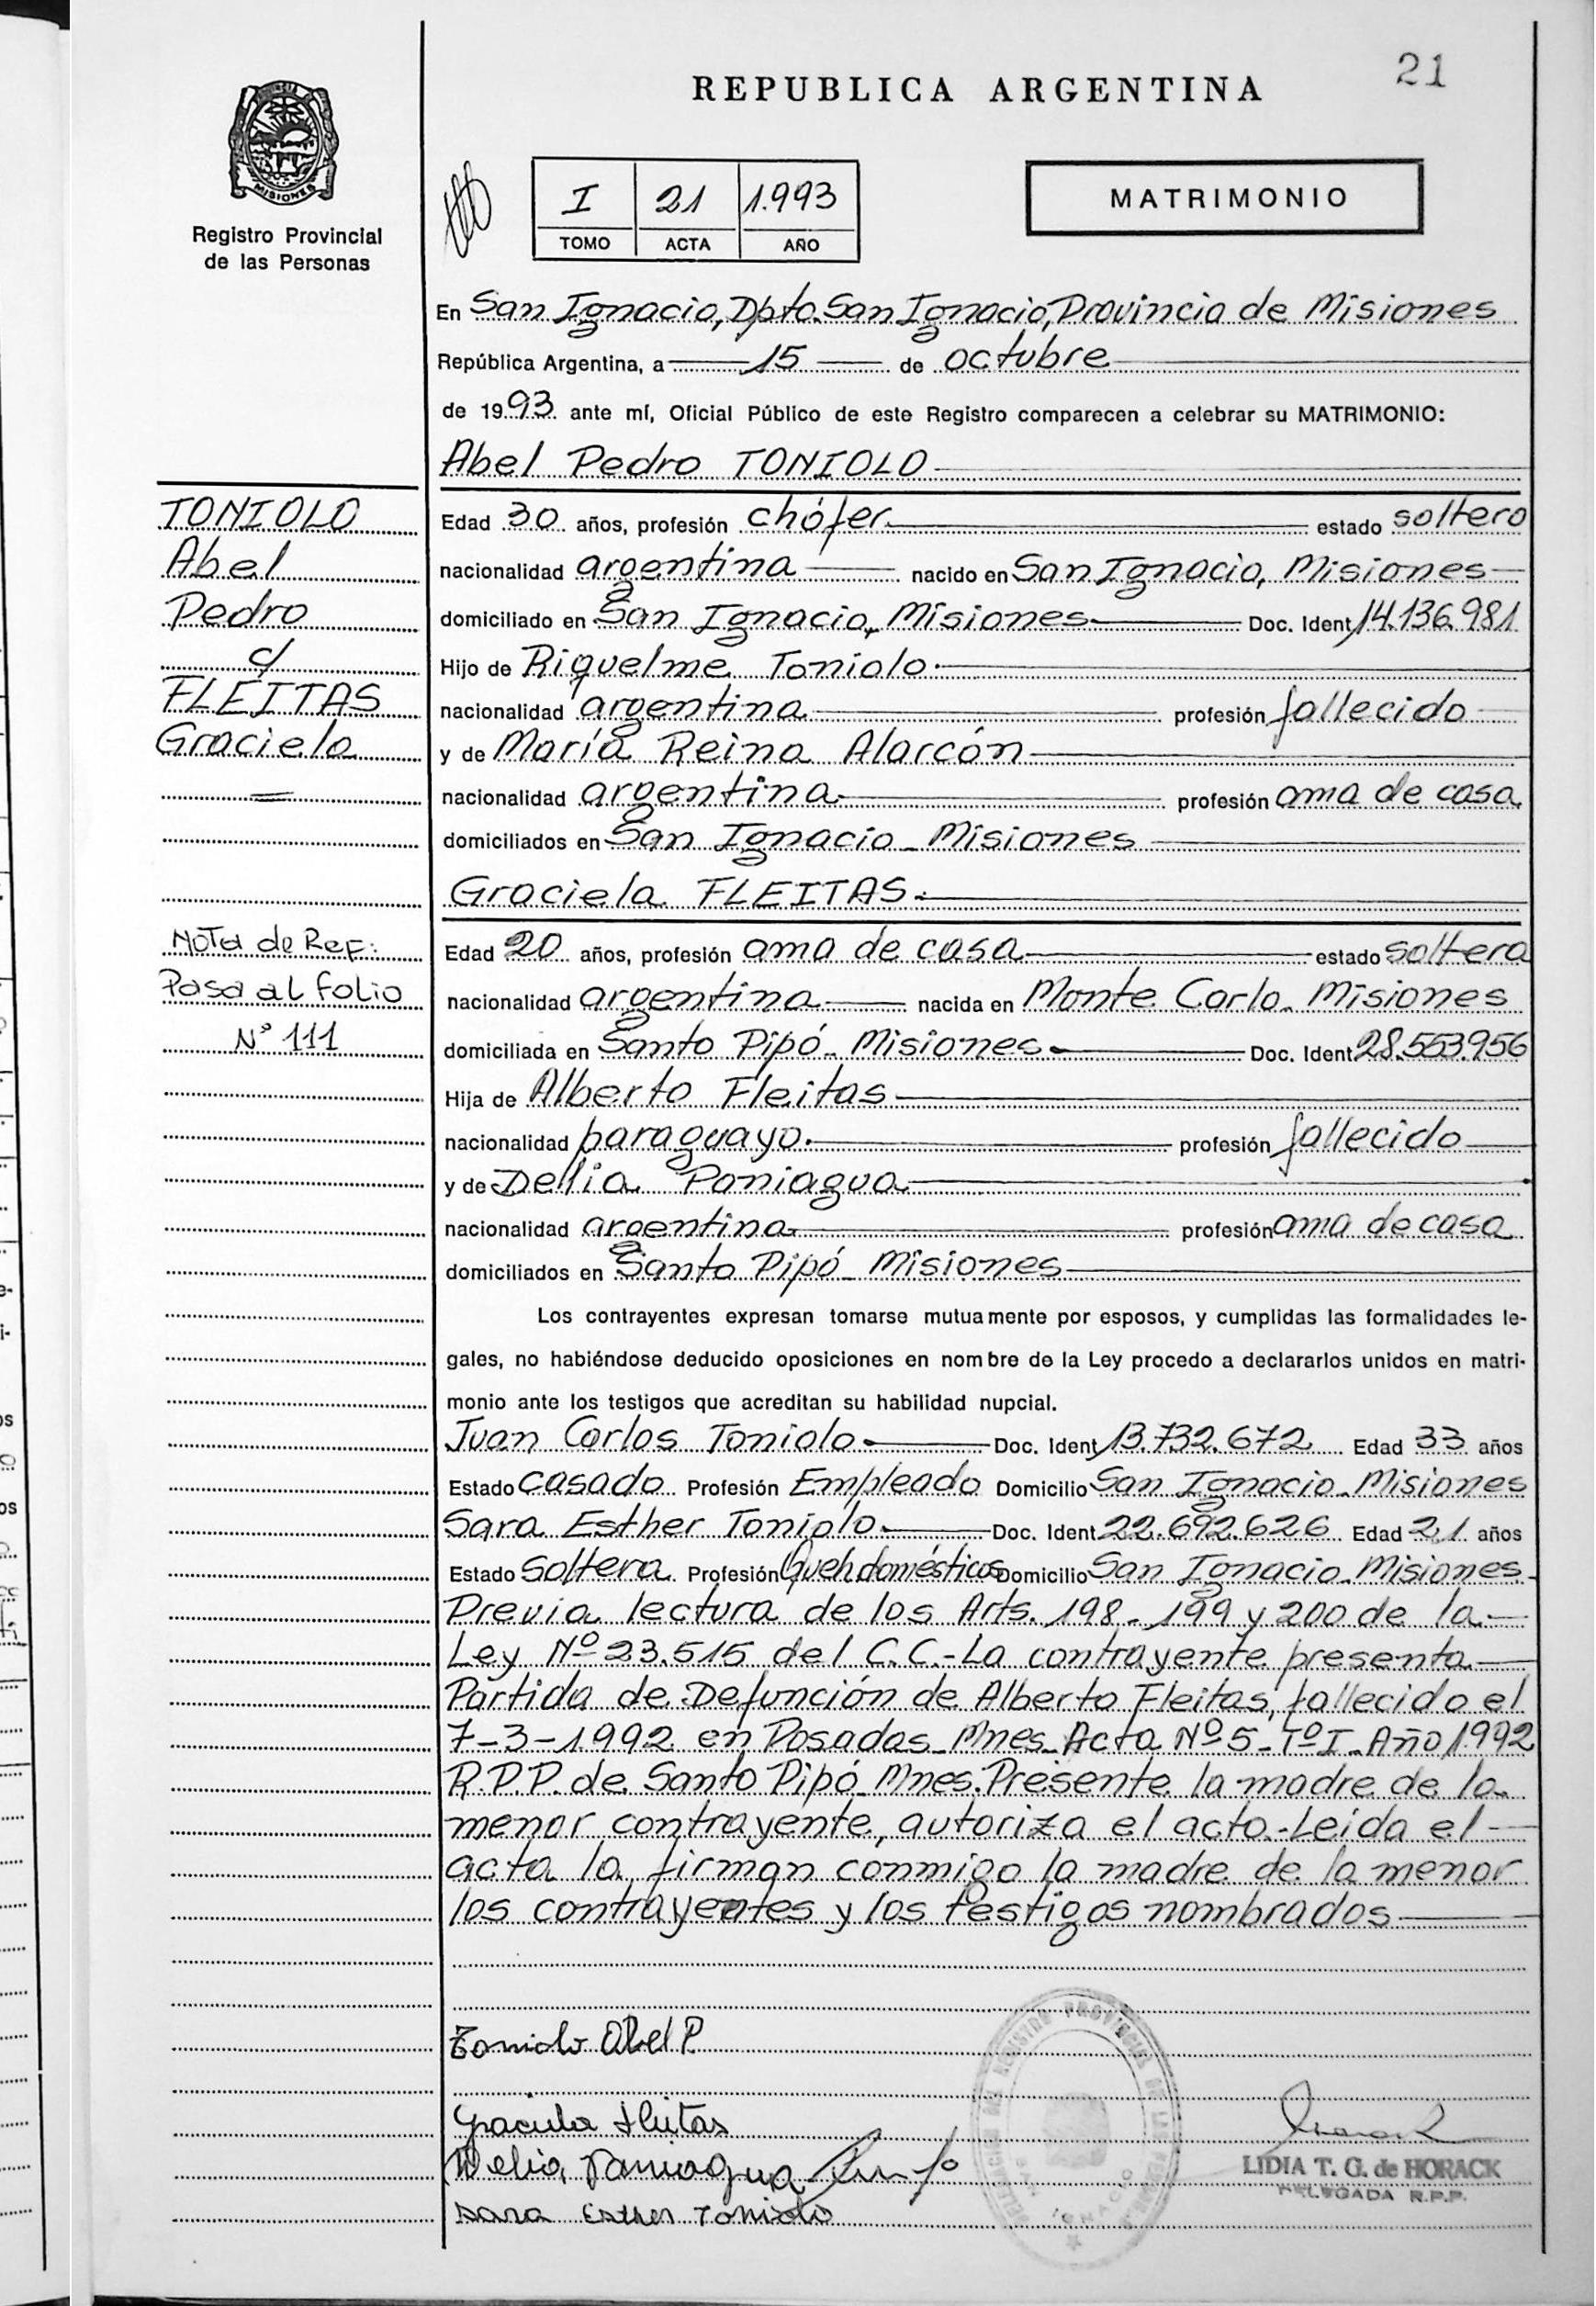 21
REPUBLICA ARGENTINA
MISIONES
Registro Provincial
de las Personas
I 21 1.993
TOMO ACTA AÑO
MATRIMONIO
En San Ignacio, Dpto. San Ignacio, Provincia de Misiones
República Argentina, a 15 de octubre
de 1993 ante mí, Oficial Público de este Registro comparecen a celebrar su MATRIMONIO:
Abel Pedro TONIOLO
TONIOLO
Abel
Pedro
c/
FLEITAS
Graciela
Edad 30 años, profesión chófer estado soltero
nacionalidad argentina nacido en San Ignacio, Misiones
domiciliado en San Ignacio, Misiones Doc. Ident. 14.136.981
Hijo de Riquelme Toniolo
nacionalidad argentina profesión fallecido
y de María Reina Alarcón
nacionalidad argentina profesión ama de casa
domiciliados en San Ignacio - Misiones
Graciela FLEITAS
Nota de Ref:
Pasa al folio
N° 111
Edad 20 años, profesión ama de casa estado soltera
nacionalidad argentina nacida en Monte Carlo - Misiones
domiciliada en Santo Pipó - Misiones Doc. Ident. 28.553.956
Hija de Alberto Fleitas
nacionalidad paraguayo profesión fallecido
y de Delia Paniagua
nacionalidad argentina profesión ama de casa
domiciliados en Santo Pipó - Misiones
Los contrayentes expresan tomarse mutuamente por esposos, y cumplidas las formalidades le-
gales, no habiéndose deducido oposiciones en nombre de la Ley procedo a declararlos unidos en matri-
monio ante los testigos que acreditan su habilidad nupcial.
Juan Carlos Toniolo Doc. Ident. 13.732.672 Edad 33 años
Estado casado Profesión Empleado Domicilio San Ignacio - Misiones
Sara Esther Toniolo Doc. Ident. 22.692.626 Edad 21 años
Estado soltera Profesión Queh. domésticos Domicilio San Ignacio - Misiones
Previa lectura de los Arts. 198 - 199 y 200 de la
Ley Nº 23.515 del C.C.- La contrayente presenta
Partida de Defunción de Alberto Fleitas, fallecido el
7-3-1992 en Posadas - Mnes - Acta Nº 5 - Tº I - Año 1992
R.P.P. de Santo Pipó Mnes. Presente la madre de la
menor contrayente, autoriza el acto.- Leída el
acta la firman conmigo la madre de la menor
los contrayentes y los testigos nombrados
Toniolo Abel P.
Graciela Fleitas
Delia Paniagua
Sara Esther Toniolo
LIDIA T. G. de HORACK
DELEGADA R.P.P.